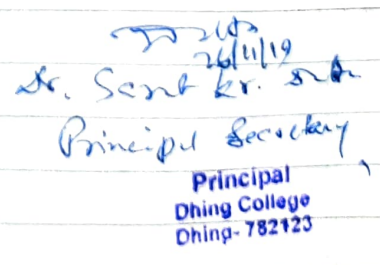 26/11/19
Dr. Sant kr.
Principal Secretary
Principal
Dhing College
Dhing- 782123